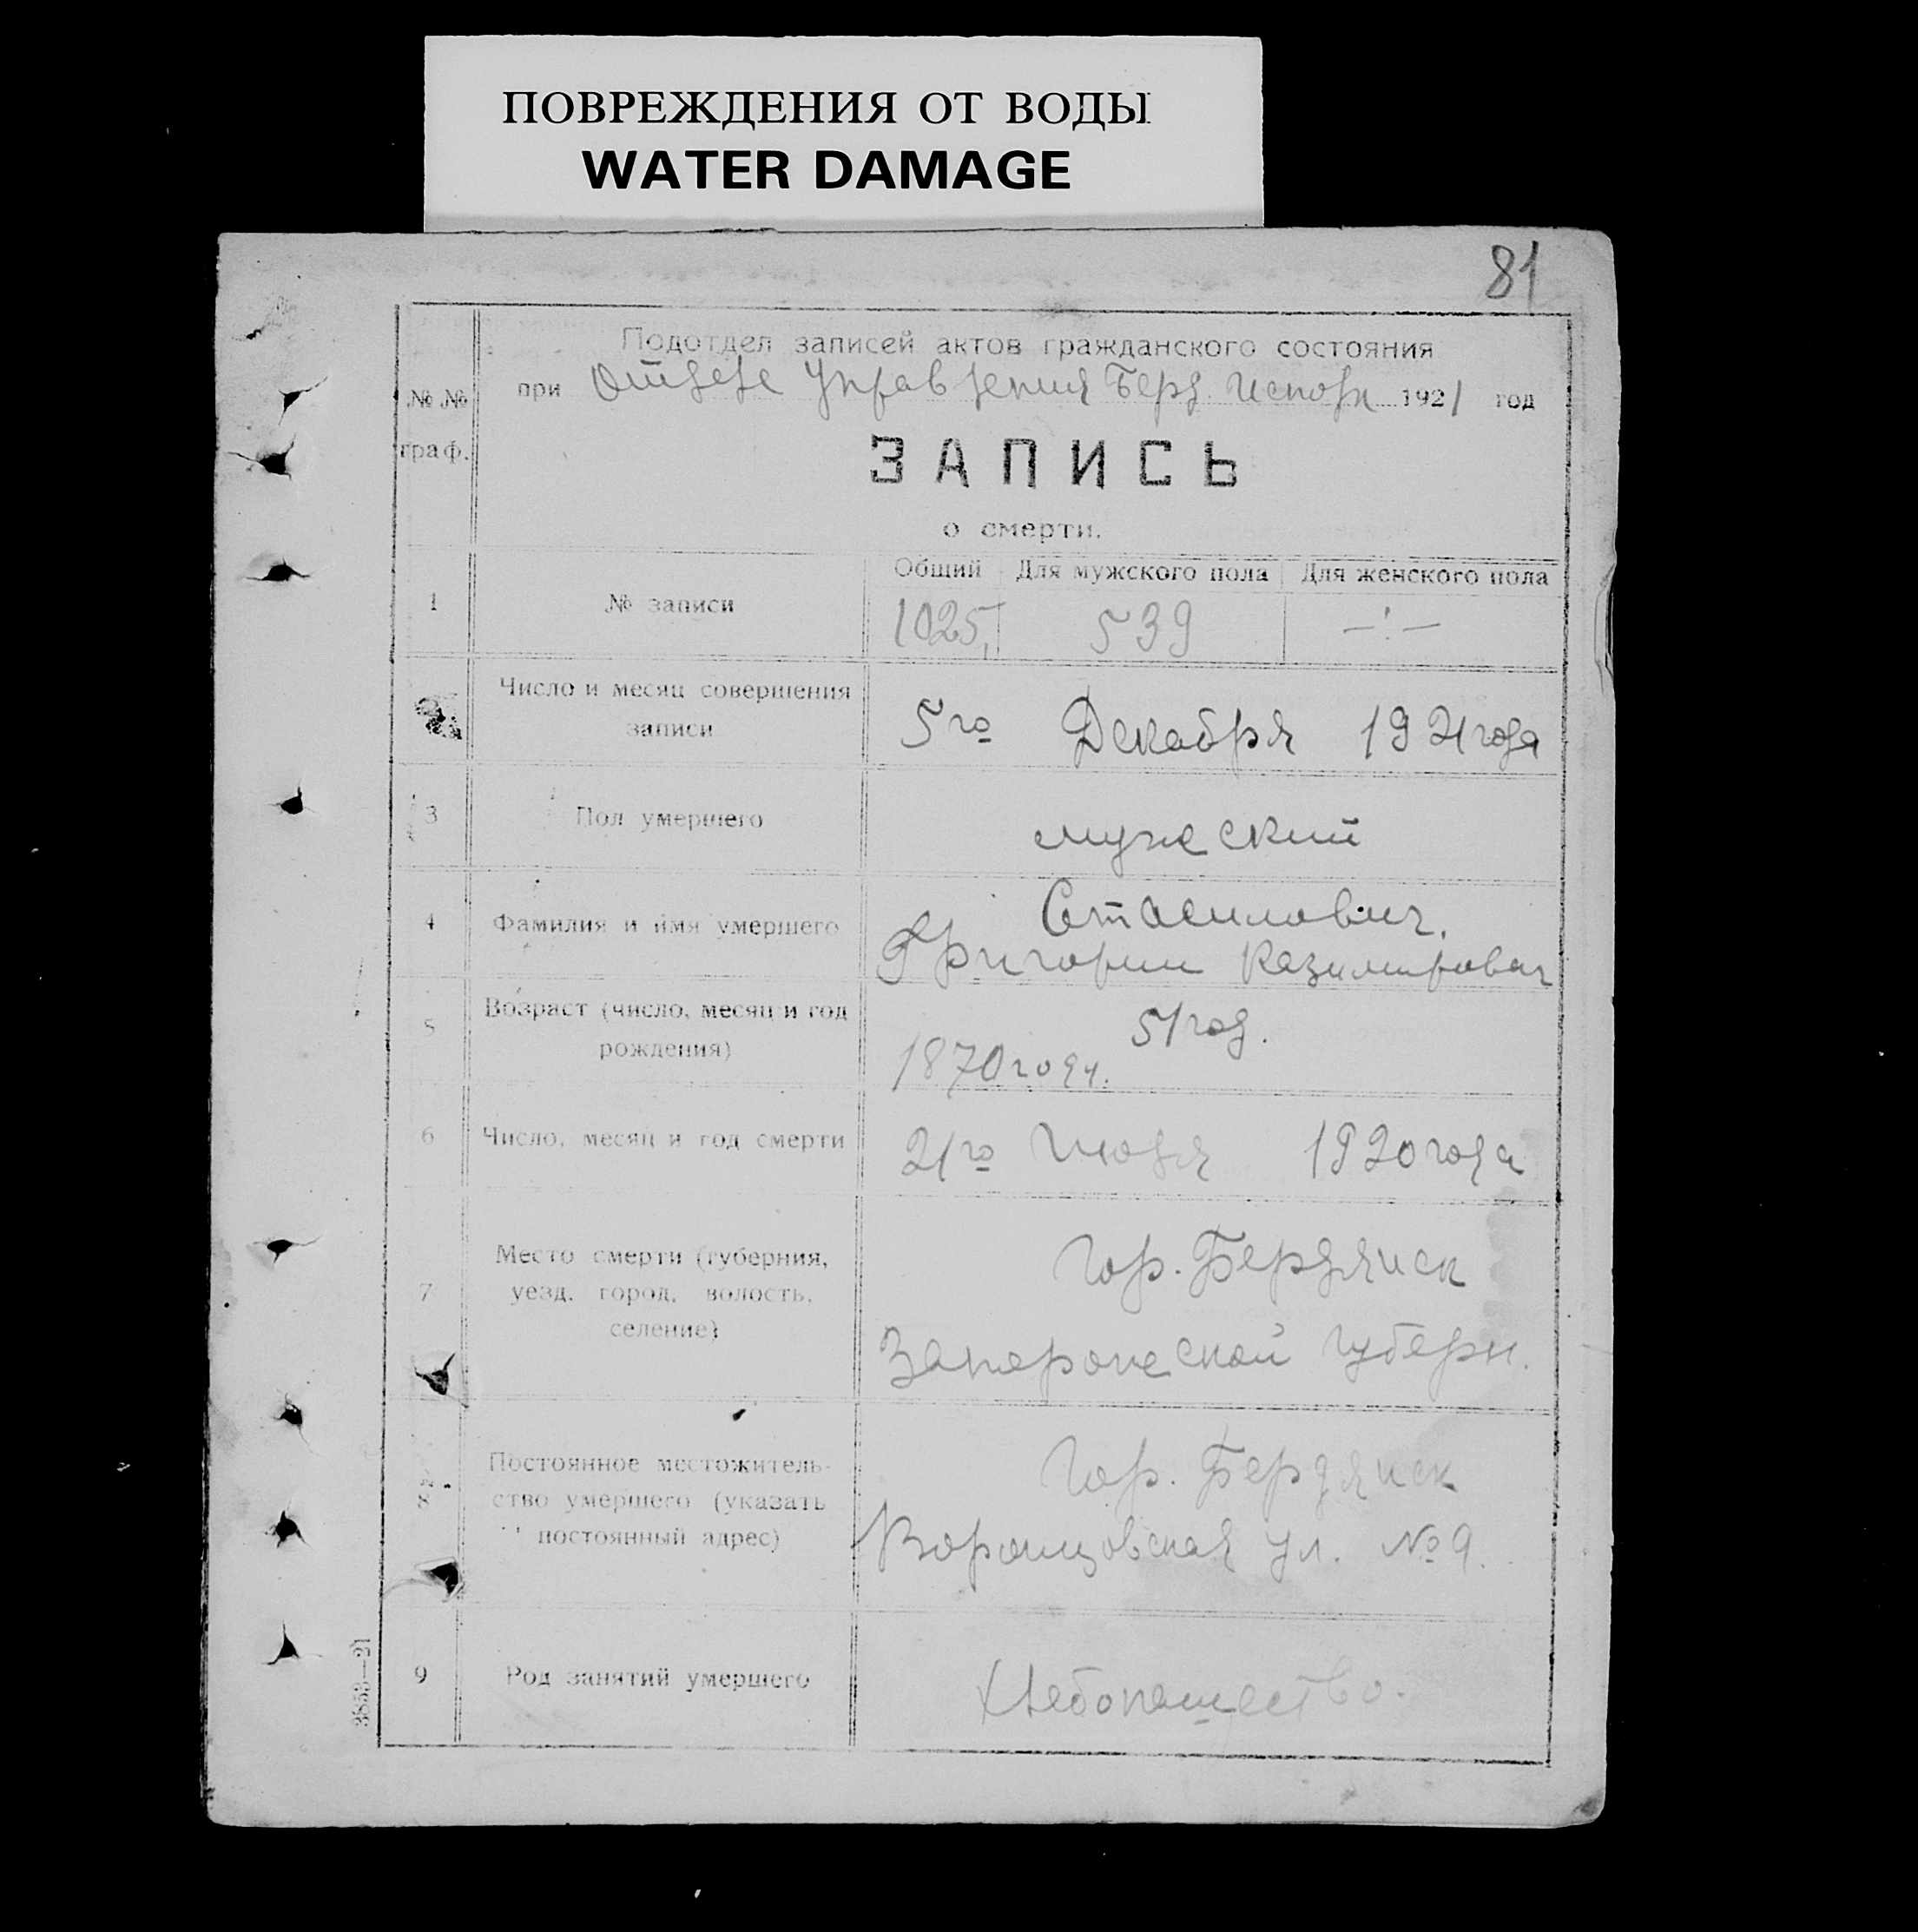 ПОВРЕЖДЕНИЯ ОТ ВОДЫ
WATER DAMAGE
81
Подотдел записей актов гражданского состояния
при Отделе Управления Берд. Исполк 1921 год
№ №
граф.
ЗАПИСЬ
о смерти.
Общий Для мужского пола Для женского пола
1 № записи 1025, 539 —:—
Число и месяц совершения
записи
5го Декабря 1921 года
3 Пол умершего мужеский
4 Фамилия и имя умершего
Стасилович.
Григории Казимирович
5 Возраст (число, месяц и год
рождения)
51 год.
1870 года.
6 Число, месяц и год смерти 21го Июля 1920 года
7 Место смерти (губерния,
уезд, город, волость,
селение)
Гор. Бердянск
Запорожской Губерн.
8 Постоянное местожитель-
ство умершего (указать
постоянный адрес)
Гор. Бердянск
Воронцовская ул. № 9.
9 Род занятий умершего Хлебопашество.
3853—21